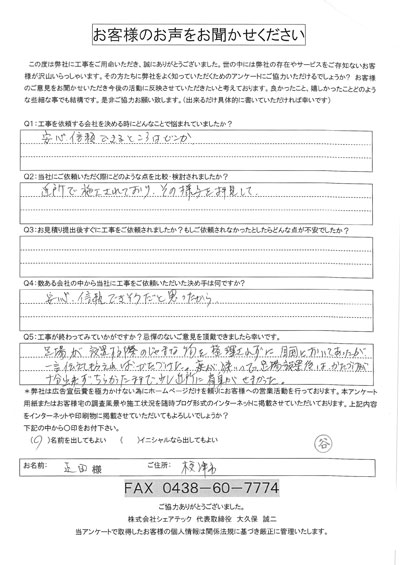 お客様のお声をお聞かせください
この度は弊社に工事をご用命いただき、誠にありがとうございました。世の中には弊社の存在やサービスをご存知ないお客
様が沢山いらっしゃいます。その方たちに弊社をよく知っていただくためのアンケートにご協力いただけるでしょうか? お客様
のご意見をお聞かせいただき今後の活動に反映させていただきたいと考えております。良かったこと、嬉しかったことどのよう
な些細な事でも結構です。是非ご協力お願い致します。(出来るだけ具体的に書いていただければ幸いです)
Q1:工事を依頼する会社を決める時にどんなことで悩まれていましたか?
安心、信頼できるところはどこか
Q2:当社にご依頼いただく際にどのような点を比較・検討されましたか?
近所で施工されており、その様子を拝見して、
Q3:お見積り提出後すぐに工事をご依頼されましたか?もしご依頼されなかったとしたらどんな点が不安でしたか?
Q4:数ある会社の中から当社に工事をご依頼いただいた決め手は何ですか?
安心、信頼できそうだと思ったから。
Q5:工事が終わってみていかがですか?忌憚のないご意見を頂戴できましたら幸いです。
足場が設置する際の
※弊社は広告宣伝費を極力かけない為にホームページだけを頼りにお客様への営業活動を行っております。本アンケート
用紙またはお客様宅の調査風景や施工状況を随時ブログ形式のインターネットに掲載させていただいております。上記内容
をインターネットや印刷物に掲載させていただいてもよろしいでしょうか?
下記の中から○印をお付下さい。
(○)名前を出してもよい ( )イニシャルなら出してもよい
谷
お名前: 様 ご住所:
FAX 0438-60-7774
ご協力ありがとうございました。
株式会社シェアテック 代表取締役 大久保 誠二
当アンケートで取得したお客様の個人情報は関係法規に基づき厳正に管理いたします。